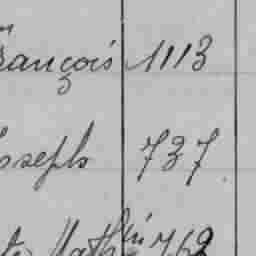 François 1113
Joseph 737
Math 762